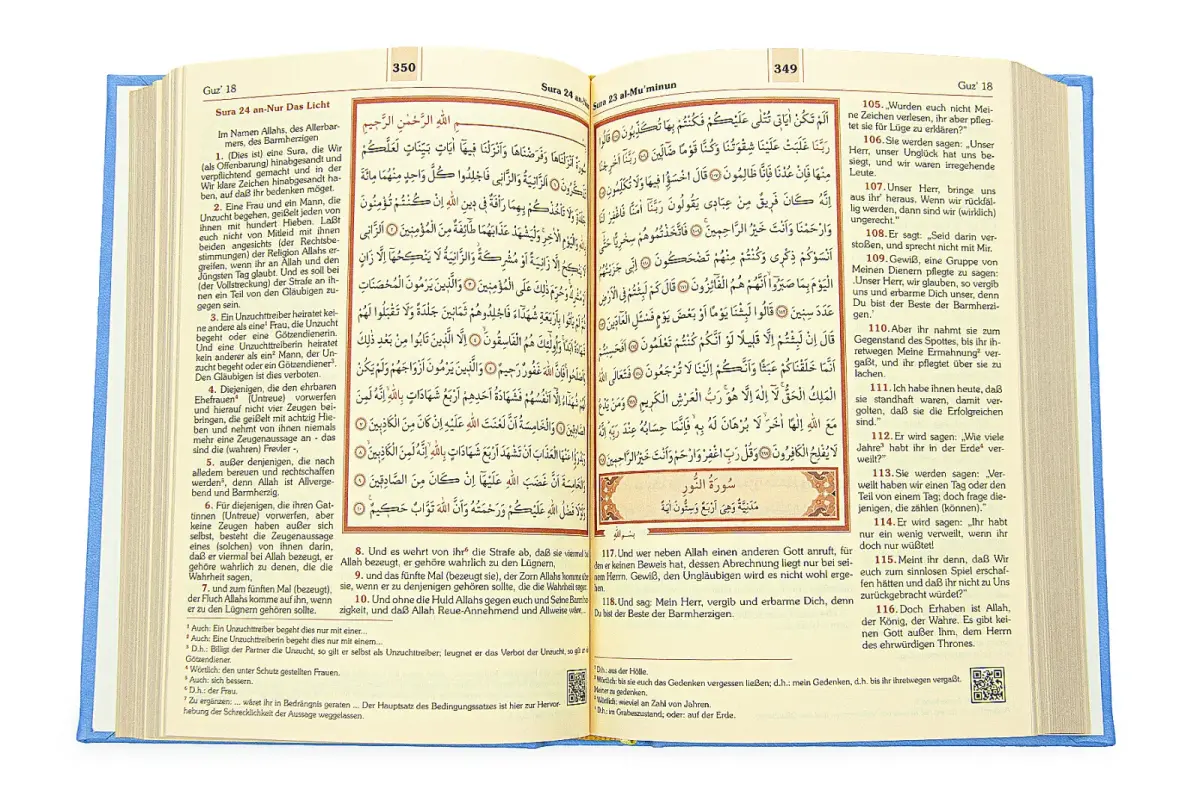 349
Sura 23 al-Mu'minun
Guz' 18
أَلَمْ تَكُنْ اٰيَاتِى تُتْلٰى عَلَيْكُمْ فَكُنْتُمْ بِهَا تُكَذِّبُونَ ﴿١٠٥﴾ قَالُوا
رَبَّنَا غَلَبَتْ عَلَيْنَا شِقْوَتُنَا وَكُنَّا قَوْمًا ضَٓالِّينَ ﴿١٠٦﴾ رَبَّنَٓا اَخْرِجْنَا
مِنْهَا فَاِنْ عُدْنَا فَاِنَّا ظَالِمُونَ ﴿١٠٧﴾ قَالَ اخْسَؤُ۫ا فِيهَا وَلَا تُكَلِّمُونِ ﴿١٠٨﴾
اِنَّهُ كَانَ فَرِيقٌ مِنْ عِبَادِى يَقُولُونَ رَبَّنَٓا اٰمَنَّا فَاغْفِرْ لَنَا
وَارْحَمْنَا وَاَنْتَ خَيْرُ الرَّاحِمِينَ ﴿١٠٩﴾ فَاتَّخَذْتُمُوهُمْ سِخْرِيًّا حَتّٰٓى
اَنْسَوْكُمْ ذِكْرِى وَكُنْتُمْ مِنْهُمْ تَضْحَكُونَ ﴿١١٠﴾ اِنِّى جَزَيْتُهُمُ
الْيَوْمَ بِمَا صَبَرُٓوا اَنَّهُمْ هُمُ الْفَٓائِزُونَ ﴿١١١﴾ قَالَ كَمْ لَبِثْتُمْ فِى الْاَرْضِ
عَدَدَ سِنِينَ ﴿١١٢﴾ قَالُوا لَبِثْنَا يَوْمًا اَوْ بَعْضَ يَوْمٍ فَسْـَٔلِ الْعَٓادِّينَ ﴿١١٣﴾
قَالَ اِنْ لَبِثْتُمْ اِلَّا قَلِيلًا لَوْ اَنَّكُمْ كُنْتُمْ تَعْلَمُونَ ﴿١١٤﴾ اَفَحَسِبْتُمْ
اَنَّمَا خَلَقْنَاكُمْ عَبَثًا وَاَنَّكُمْ اِلَيْنَا لَا تُرْجَعُونَ ﴿١١٥﴾ فَتَعَالَى اللّٰهُ
الْمَلِكُ الْحَقُّ لَٓا اِلٰهَ اِلَّا هُوَ رَبُّ الْعَرْشِ الْكَرِيمِ ﴿١١٦﴾ وَمَنْ يَدْعُ
مَعَ اللّٰهِ اِلٰهًا اٰخَرَ لَا بُرْهَانَ لَهُ بِهِ فَاِنَّمَا حِسَابُهُ عِنْدَ رَبِّهِ اِنَّهُ
لَا يُفْلِحُ الْكَافِرُونَ ﴿١١٧﴾ وَقُلْ رَبِّ اغْفِرْ وَارْحَمْ وَاَنْتَ خَيْرُ الرَّاحِمِينَ ﴿١١٨﴾
سُورَةُ النُّورِ
مَدَنِيَّةٌ وَهِىَ اَرْبَعٌ وَسِتُّونَ اٰيَةً
بِسْمِ اللّٰهِ
105. „Wurden euch nicht Mei-
ne Zeichen verlesen, ihr aber pfleg-
tet sie für Lüge zu erklären?"
106. Sie werden sagen: „Unser
Herr, unser Unglück hat uns be-
siegt, und wir waren irregehende
Leute.
107. Unser Herr, bringe uns
aus ihr¹ heraus. Wenn wir rückfäl-
lig werden, dann sind wir (wirklich)
ungerecht."
108. Er sagt: „Seid darin ver-
stoßen, und sprecht nicht mit Mir.
109. Gewiß, eine Gruppe von
Meinen Dienern pflegte zu sagen:
‚Unser Herr, wir glauben, so vergib
uns und erbarme Dich unser, denn
Du bist der Beste der Barmherzi-
gen.'
110. Aber ihr nahmt sie zum
Gegenstand des Spottes, bis ihr ih-
retwegen Meine Ermahnung² ver-
gaßt, und ihr pflegtet über sie zu
lachen.
111. Ich habe ihnen heute, daß
sie standhaft waren, damit ver-
golten, daß sie die Erfolgreichen
sind."
112. Er wird sagen: „Wie viele
Jahre³ habt ihr in der Erde⁴ ver-
weilt?"
113. Sie werden sagen: „Ver-
weilt haben wir einen Tag oder den
Teil von einem Tag; doch frage die-
jenigen, die zählen (können)."
114. Er wird sagen: „Ihr habt
nur ein wenig verweilt, wenn ihr
doch nur wüßtet!
115. Meint ihr denn, daß Wir
euch zum sinnlosen Spiel erschaf-
fen hätten und daß ihr nicht zu Uns
zurückgebracht würdet?"
116. Doch Erhaben ist Allah,
der König, der Wahre. Es gibt kei-
nen Gott außer Ihm, dem Herrn
des ehrwürdigen Thrones.
117. Und wer neben Allah einen anderen Gott anruft, für
den er keinen Beweis hat, dessen Abrechnung liegt nur bei sei-
nem Herrn. Gewiß, den Ungläubigen wird es nicht wohl erge-
hen.
118. Und sag: Mein Herr, vergib und erbarme Dich, denn
Du bist der Beste der Barmherzigen.
¹ D.h.: aus der Hölle.
² Wörtlich: bis sie euch das Gedenken vergessen ließen; d.h.: mein Gedenken, d.h. bis ihr ihretwegen vergaßt,
Meiner zu gedenken.
³ Wörtlich: wieviel an Zahl von Jahren.
⁴ D.h.: im Grabeszustand; oder: auf der Erde.
350
Guz' 18
Sura 24 an-Nur
Sura 24 an-Nur Das Licht
Im Namen Allahs, des Allerbar-
mers, des Barmherzigen
1. (Dies ist) eine Sura, die Wir
(als Offenbarung) hinabgesandt und
verpflichtend gemacht und in der
Wir klare Zeichen hinabgesandt ha-
ben, auf daß ihr bedenken möget.
2. Eine Frau und ein Mann, die
Unzucht begehen, geißelt jeden von
ihnen mit hundert Hieben. Laßt
euch nicht von Mitleid mit ihnen
beiden angesichts (der Rechtsbe-
stimmungen) der Religion Allahs er-
greifen, wenn ihr an Allah und den
Jüngsten Tag glaubt. Und es soll bei
(der Vollstreckung) der Strafe an ih-
nen ein Teil von den Gläubigen zu-
gegen sein.
3. Ein Unzuchttreiber heiratet kei-
ne andere als eine¹ Frau, die Unzucht
begeht oder eine Götzendienerin.
Und eine Unzuchttreiberin heiratet
kein anderer als ein² Mann, der Un-
zucht begeht oder ein Götzendiener³.
Den Gläubigen ist dies verboten.
4. Diejenigen, die den ehrbaren
Ehefrauen⁴ (Untreue) vorwerfen
und hierauf nicht vier Zeugen bei-
bringen, die geißelt mit achtzig Hie-
ben und nehmt von ihnen niemals
mehr eine Zeugenaussage an - das
sind die (wahren) Frevler -,
5. außer denjenigen, die nach
alledem bereuen und rechtschaffen
werden⁵, denn Allah ist Allverge-
bend und Barmherzig.
6. Für diejenigen, die ihren Gat-
tinnen (Untreue) vorwerfen, aber
keine Zeugen haben außer sich
selbst, besteht die Zeugenaussage
eines (solchen) von ihnen darin,
daß er viermal bei Allah bezeugt, er
gehöre wahrlich zu denen, die die
Wahrheit sagen,
7. und zum fünften Mal (bezeugt),
der Fluch Allahs komme auf ihn, wenn
er zu den Lügnern gehören sollte.
اللّٰهِ الرَّحْمٰنِ الرَّحِيمِ
سُورَةٌ اَنْزَلْنَاهَا وَفَرَضْنَاهَا وَاَنْزَلْنَا فِيهَٓا اٰيَاتٍ بَيِّنَاتٍ لَعَلَّكُمْ
تَذَكَّرُونَ ﴿١﴾ اَلزَّانِيَةُ وَالزَّانِى فَاجْلِدُوا كُلَّ وَاحِدٍ مِنْهُمَا مِائَةَ
جَلْدَةٍ وَلَا تَأْخُذْكُمْ بِهِمَا رَأْفَةٌ فِى دِينِ اللّٰهِ اِنْ كُنْتُمْ تُؤْمِنُونَ
بِاللّٰهِ وَالْيَوْمِ الْاٰخِرِ وَلْيَشْهَدْ عَذَابَهُمَا طَٓائِفَةٌ مِنَ الْمُؤْمِنِينَ ﴿٢﴾ اَلزَّانِى
لَا يَنْكِحُ اِلَّا زَانِيَةً اَوْ مُشْرِكَةً وَالزَّانِيَةُ لَا يَنْكِحُهَٓا اِلَّا زَانٍ
اَوْ مُشْرِكٌ وَحُرِّمَ ذٰلِكَ عَلَى الْمُؤْمِنِينَ ﴿٣﴾ وَالَّذِينَ يَرْمُونَ الْمُحْصَنَاتِ
ثُمَّ لَمْ يَأْتُوا بِاَرْبَعَةِ شُهَدَٓاءَ فَاجْلِدُوهُمْ ثَمَانِينَ جَلْدَةً وَلَا تَقْبَلُوا لَهُمْ
شَهَادَةً اَبَدًا وَاُو۬لٰٓئِكَ هُمُ الْفَاسِقُونَ ﴿٤﴾ اِلَّا الَّذِينَ تَابُوا مِنْ بَعْدِ ذٰلِكَ
وَاَصْلَحُوا فَاِنَّ اللّٰهَ غَفُورٌ رَحِيمٌ ﴿٥﴾ وَالَّذِينَ يَرْمُونَ اَزْوَاجَهُمْ وَلَمْ يَكُنْ
لَهُمْ شُهَدَٓاءُ اِلَّٓا اَنْفُسُهُمْ فَشَهَادَةُ اَحَدِهِمْ اَرْبَعُ شَهَادَاتٍ بِاللّٰهِ اِنَّهُ لَمِنَ
الصَّادِقِينَ ﴿٦﴾ وَالْخَامِسَةُ اَنَّ لَعْنَتَ اللّٰهِ عَلَيْهِ اِنْ كَانَ مِنَ الْكَاذِبِينَ ﴿٧﴾
وَيَدْرَؤُ۬ا عَنْهَا الْعَذَابَ اَنْ تَشْهَدَ اَرْبَعَ شَهَادَاتٍ بِاللّٰهِ اِنَّهُ لَمِنَ الْكَاذِبِينَ ﴿٨﴾
وَالْخَامِسَةَ اَنَّ غَضَبَ اللّٰهِ عَلَيْهَٓا اِنْ كَانَ مِنَ الصَّادِقِينَ ﴿٩﴾
وَلَوْلَا فَضْلُ اللّٰهِ عَلَيْكُمْ وَرَحْمَتُهُ وَاَنَّ اللّٰهَ تَوَّابٌ حَكِيمٌ ﴿١٠﴾
8. Und es wehrt von ihr⁶ die Strafe ab, daß sie viermal bei
Allah bezeugt, er gehöre wahrlich zu den Lügnern,
9. und das fünfte Mal (bezeugt sie), der Zorn Allahs komme über
sie, wenn er zu denjenigen gehören sollte, die die Wahrheit sagen.
10. Und ohne die Huld Allahs gegen euch und Seine Barmher-
zigkeit, und daß Allah Reue-Annehmend und Allweise wäre...
¹ Auch: Ein Unzuchttreiber begeht dies nur mit einer...
² Auch: Eine Unzuchttreiberin begeht dies nur mit einem...
³ D.h.: Billigt der Partner die Unzucht, so gilt er selbst als Unzuchttreiber; leugnet er das Verbot der Unzucht, so gilt er als
Götzendiener.
⁴ Wörtlich: den unter Schutz gestellten Frauen.
⁵ Auch: sich bessern.
⁶ D.h.: der Frau.
⁷ Zu ergänzen: ... wäret ihr in Bedrängnis geraten ... Der Hauptsatz des Bedingungssatzes ist hier zur Hervor-
hebung der Schrecklichkeit der Aussage weggelassen.